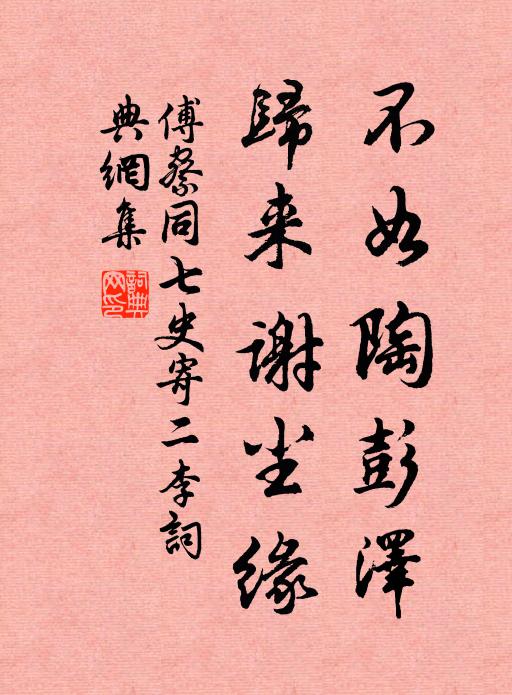 不如陶彭澤
歸来謝尘緣
傅察同七史寄二李詞
典網集
詞典網印